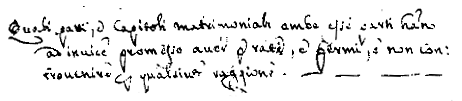 Quali patti, e Capitoli matrimoniali ambe esse parti hano
ad invicē promesso aver p rati, e fermi, e non con:
trovenire p qualsivē raggione.